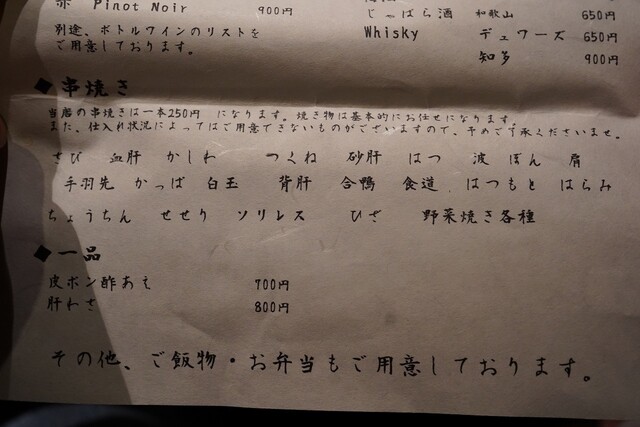 赤 Pinot Noir 900円
別途、ボトルワインのリストを
ご用意しております。
じゃばら酒 和歌山 650円
Whisky デュワーズ 650円
知多 900円
◆串焼き
当店の串焼きは一本250円 になります。焼き物は基本的にお任せになります。
また、仕入れ状況によってはご用意できないものがございますので、予めご了承くださいませ。
さび 血肝 かしわ つくね 砂肝 はつ 波 ぼん 肩
手羽先 かっぱ 白玉 背肝 合鴨 食道 はつもと はらみ
ちょうちん せせり ソリレス ひざ 野菜焼き各種
◆一品
皮ポン酢あえ 700円
肝わさ 800円
その他、ご飯物・お弁当もご用意しております。